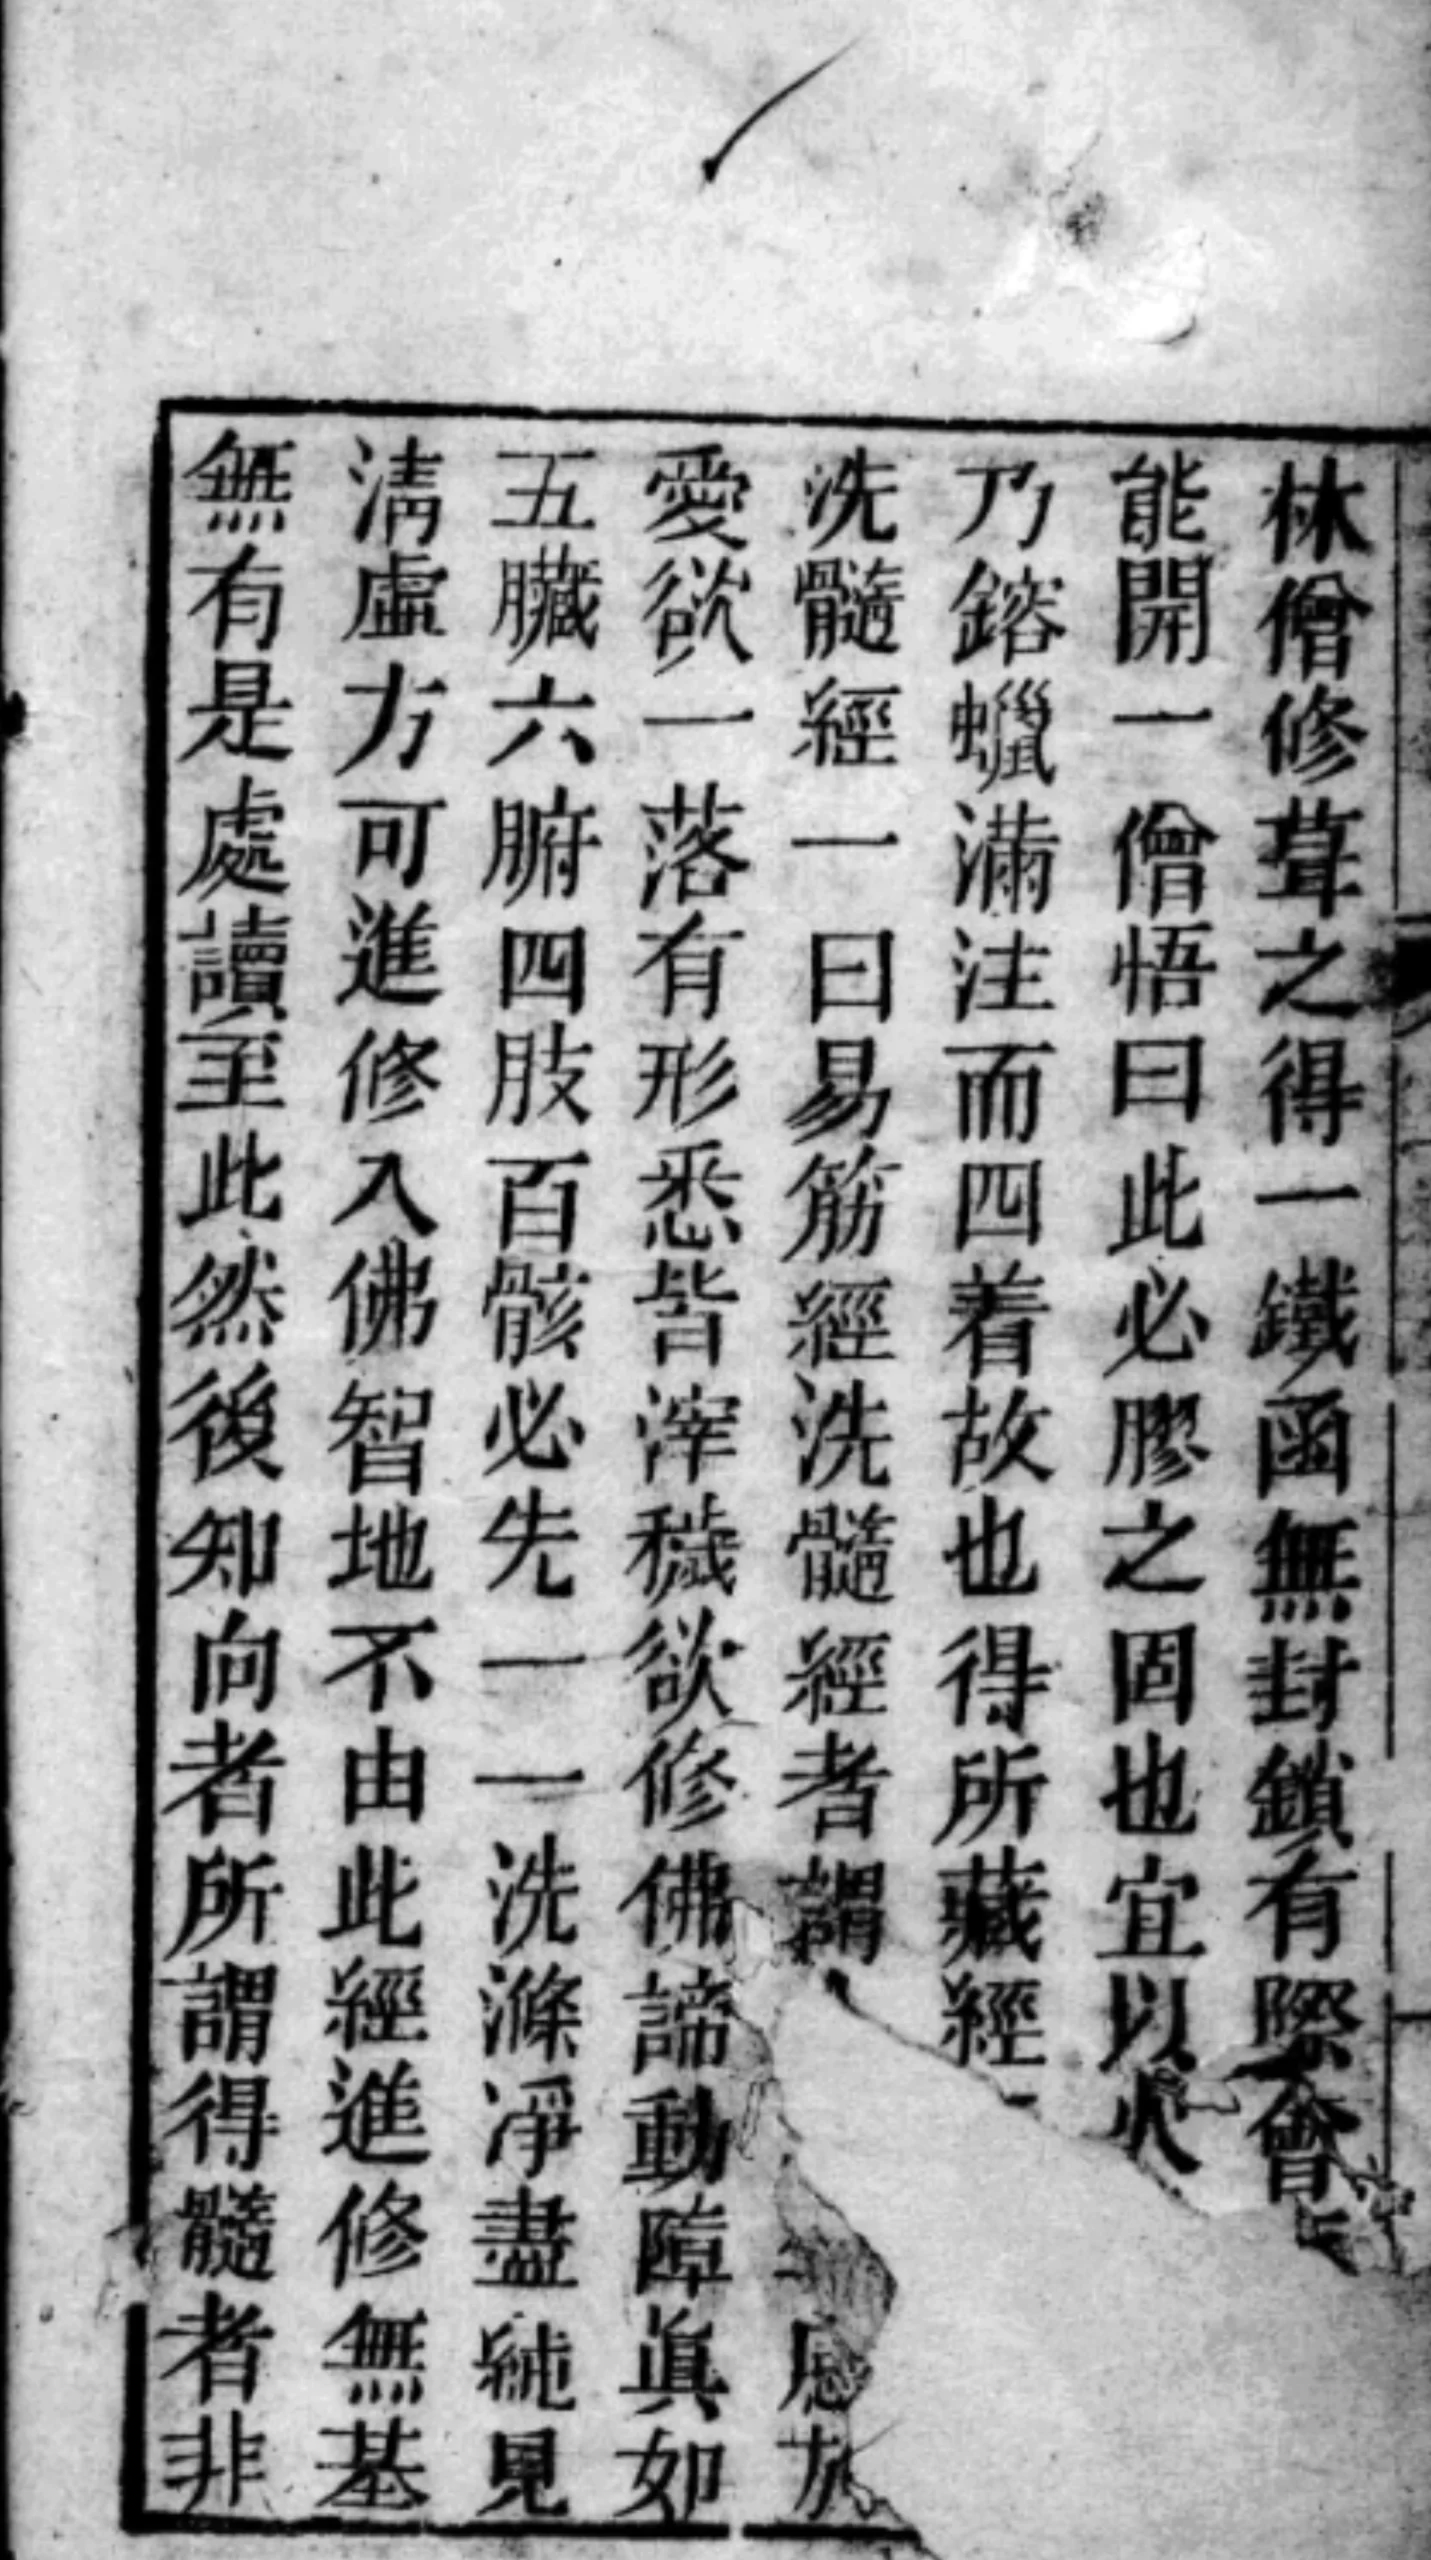 林僧修葺之得一鐵函無封鎖有際會
能開一僧悟曰此必膠之固也宜以火
乃鎔蠟滿注而四着故也得所藏經
洗髓經一曰易筋經洗髓經者謂感於
愛欲一落有形悉皆滓穢欲修佛諦動障眞如
五臟六腑四肢百骸必先一一洗滌凈盡純見
淸虛方可進修入佛智地不由此經進修無基
無有是處讀至此然後知向者所謂得髓者非